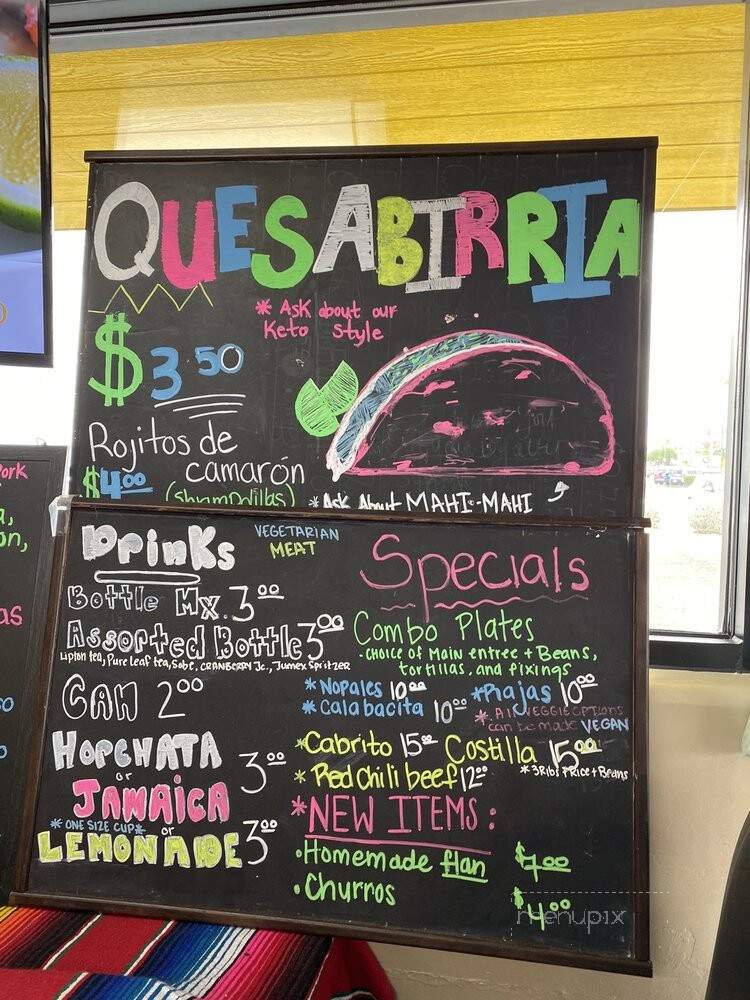 QUESABIRRIA
* Ask about our
Keto style
$3.50
Rojitos de
camarón
$4.00
(shrimp dillas)
*Ask About MAHI-MAHI
Drinks
VEGETARIAN
MEAT
Bottle Mx. 3.00
Assorted Bottle 3.00
Lipton tea, Pure Leaf tea, Sobe, CRANBERRY Jc., Jumex Spritzer
CAN 2.00
HORCHATA
or
JAMAICA
3.00
*ONE SIZE CUP*
or
LEMONADE 3.00
Specials
Combo Plates
- CHOICE of Main entree + Beans,
tortillas, and fixings
*Nopales 10.00 *Rajas 10.00
*Calabacita 10.00
*All VEGGIE OPTIONS
can be made VEGAN
*Cabrito 15.00 Costilla 15.00
*3 Ribs + Rice + Beans
* Red Chili beef 12.00
*NEW ITEMS:
•Homemade flan $7.00
•Churros $4.00
Pork
menupix